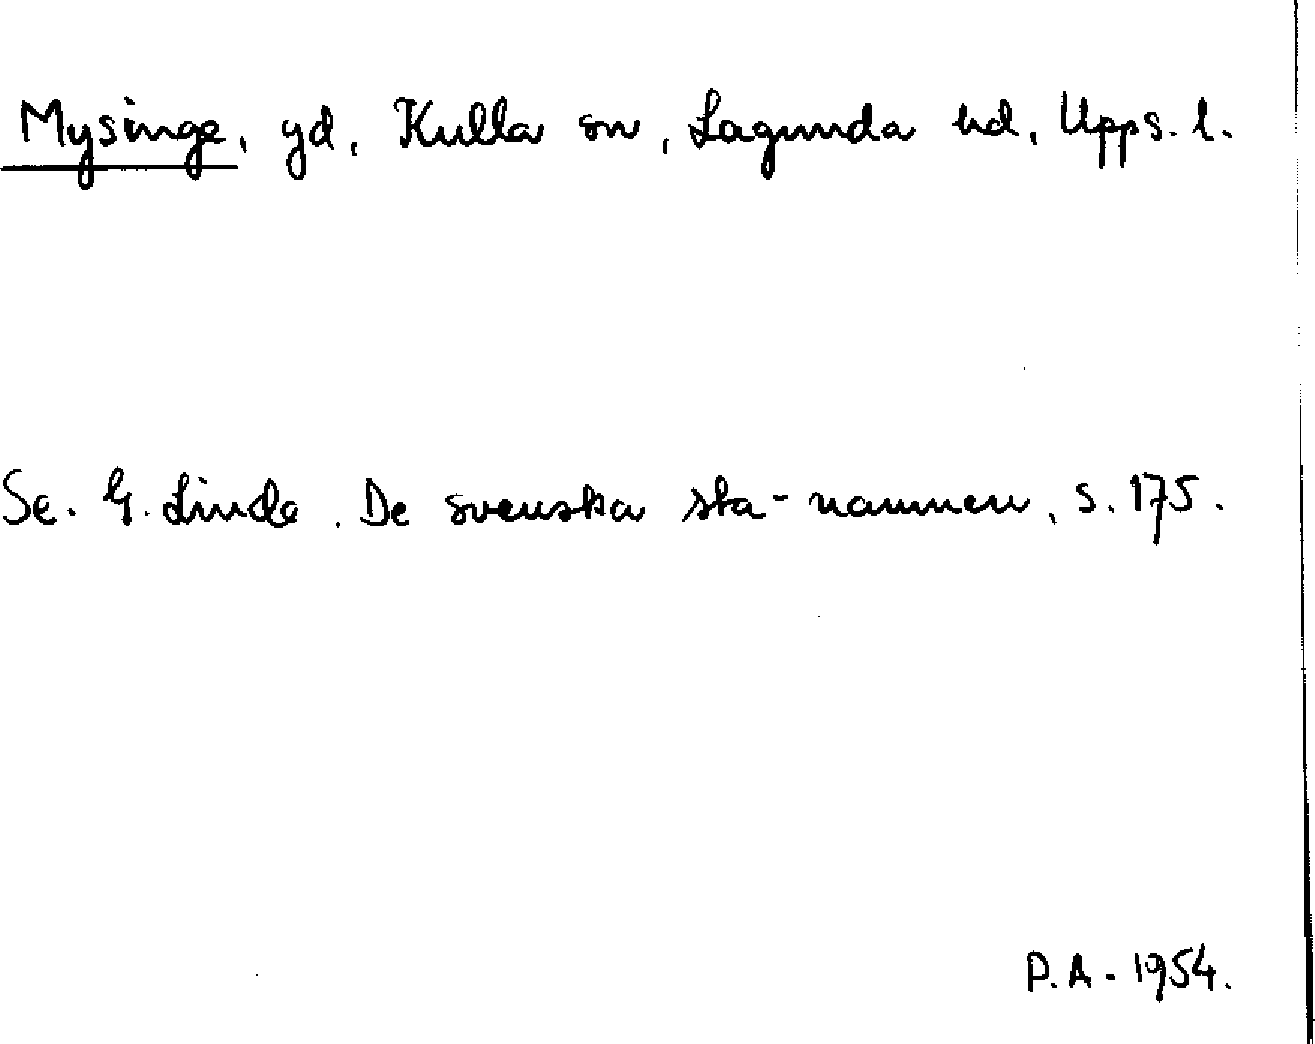 Mysinge, gd, Kulla sn, Lagunda hd, Upps. l.
Se. G. Linde. De svenska sta-namnen, s. 175.
P.A. 1954.